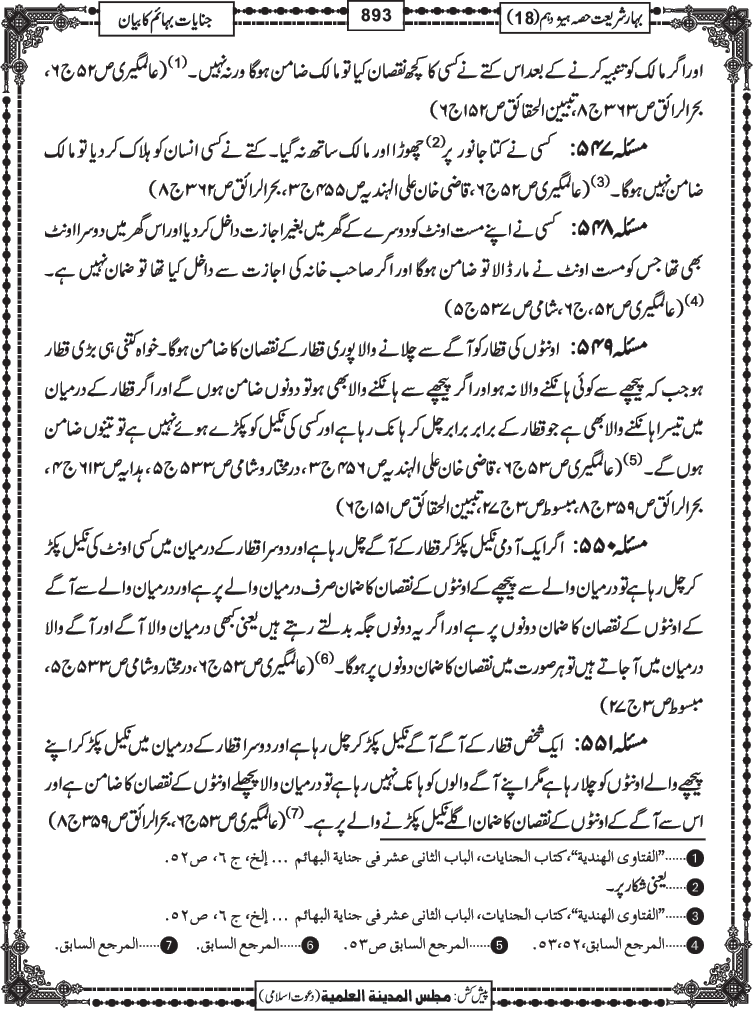 بہار شریعت حصہ ہیژدہم (18)
893
جنایات بہائم کا بیان
اور اگر مالک کو تنبیہ کرنے کے بعد اس کتے نے کسی کا کچھ نقصان کیا تو مالک ضامن ہوگا ورنہ نہیں۔(1) (عالمگیری ص ۵۲ ج ۶،
بحر الرائق ص ۳۶۳ ج ۸، تبیین الحقائق ص ۱۵۲ ج ۶)
مسئلہ ۵۴۷: کسی نے کتا جانور پر(2) چھوڑا اور مالک ساتھ نہ گیا۔ کتے نے کسی انسان کو ہلاک کر دیا تو مالک
ضامن نہیں ہوگا۔(3) (عالمگیری ص ۵۲ ج ۶، قاضی خان علی الہندیہ ص ۴۵۵ ج ۳، بحر الرائق ص ۳۶۲ ج ۸)
مسئلہ ۵۴۸: کسی نے اپنے مست اونٹ کو دوسرے کے گھر میں بغیر اجازت داخل کر دیا اور اس گھر میں دوسرا اونٹ
بھی تھا جس کو مست اونٹ نے مار ڈالا تو ضامن ہوگا اور اگر صاحب خانہ کی اجازت سے داخل کیا تھا تو ضمان نہیں ہے۔
(4) (عالمگیری ص ۵۲، ج ۶، شامی ص ۵۳۷ ج ۵)
مسئلہ ۵۴۹: اونٹوں کی قطار کو آگے سے چلانے والا پوری قطار کے نقصان کا ضامن ہوگا۔ خواہ کتنی ہی بڑی قطار
ہو جب کہ پیچھے سے کوئی ہانکنے والا نہ ہو اور اگر پیچھے سے ہانکنے والا بھی ہو تو دونوں ضامن ہوں گے اور اگر قطار کے درمیان
میں تیسرا ہانکنے والا بھی ہے جو قطار کے برابر برابر چل کر ہانک رہا ہے اور کسی کی نکیل کو پکڑے ہوئے نہیں ہے تو تینوں ضامن
ہوں گے۔(5) (عالمگیری ص ۵۳ ج ۶، قاضی خان علی الہندیہ ص ۴۵۶ ج ۳، در مختار و شامی ص ۵۳۳ ج ۵، ہدایہ ص ۶۱۳ ج ۴،
بحر الرائق ص ۳۵۹ ج ۸، مبسوط ص ۳ ج ۲۷، تبیین الحقائق ص ۱۵۱ ج ۶)
مسئلہ ۵۵۰: اگر ایک آدمی نکیل پکڑ کر قطار کے آگے چل رہا ہے اور دوسرا قطار کے درمیان میں کسی اونٹ کی نکیل پکڑ
کر چل رہا ہے تو درمیان والے سے پیچھے کے اونٹوں کے نقصان کا ضمان صرف درمیان والے پر ہے اور درمیان والے سے آگے
کے اونٹوں کے نقصان کا ضمان دونوں پر ہے اور اگر یہ دونوں جگہ بدلتے رہتے ہیں یعنی کبھی درمیان والا آگے اور آگے والا
درمیان میں آ جاتے ہیں تو ہر صورت میں نقصان کا ضمان دونوں پر ہوگا۔(6) (عالمگیری ص ۵۳ ج ۶، در مختار و شامی ص ۵۳۳ ج ۵،
مبسوط ص ۳ ج ۲۷)
مسئلہ ۵۵۱: ایک شخص قطار کے آگے آگے نکیل پکڑ کر چل رہا ہے اور دوسرا قطار کے درمیان میں نکیل پکڑ کر اپنے
پیچھے والے اونٹوں کو چلا رہا ہے مگر اپنے آگے والوں کو ہانک نہیں رہا ہے تو درمیان والا پچھلے اونٹوں کے نقصان کا ضامن ہے اور
اس سے آگے کے اونٹوں کے نقصان کا ضمان اگلے نکیل پکڑنے والے پر ہے۔(7) (عالمگیری ص ۵۳ ج ۶، بحر الرائق ص ۳۵۹ ج ۸)
1 ......"الفتاوى الهندية"، كتاب الجنايات، الباب الثاني عشر في جناية البهائم ... إلخ، ج ٦، ص ٥٢.
2 ......یعنی شکار پر۔
3 ......"الفتاوى الهندية"، كتاب الجنايات، الباب الثاني عشر في جناية البهائم ... إلخ، ج ٦، ص ٥٢.
4 ......المرجع السابق، ٥٢، ٥٣. 5 ......المرجع السابق ص ٥٣. 6 ......المرجع السابق. 7 ......المرجع السابق.
پیش کش: مجلس المدينة العلمية (دعوت اسلامی)